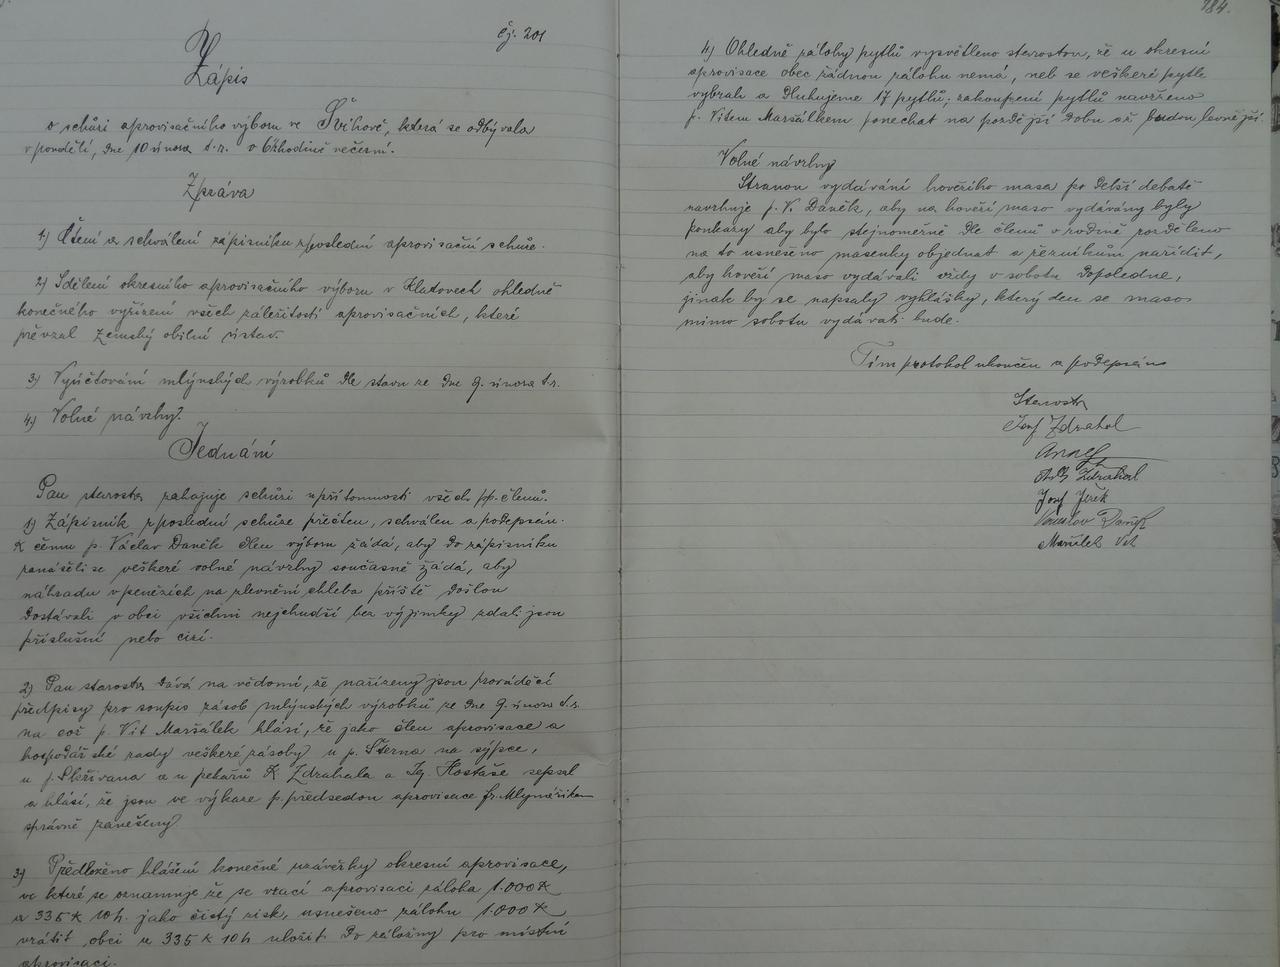 čj. 201
Zápis
o schůzi aprovisačního výboru ve Švihově, která se odbývala
v pondělí, dne 10 února t.r. o 6té hodině večerní.
Zpráva
1) Čtení a schválení zápisníku z poslední aprovisační schůze.
2) Sdělení okresního aprovisačního výboru v Klatovech ohledně
konečného vyřízení všech záležitostí aprovisačních, které
převzal Zemský obilní ústav.
3) Vyúčtování mlýnských výrobků dle stavu ze dne 9. února t.r.
4) Volné návrhy.
Jednání
Pan starosta zahajuje schůzi u přítomnosti všech pp. členů.
1) Zápisník z poslední schůze přečten, schválen a podepsán.
K čemu p. Václav Daněk člen výboru žádá, aby do zápisníku
zanášeli se veškeré volné návrhy současně žádá, aby
náhradu v penězích na zlevnění chleba příště došlou
dostávali v obci všichni nejchudší bez výjimky zdali jsou
příslušní nebo cizí.
2) Pan starosta dává na vědomí, že nařízeny jsou prováděcí
předpisy pro soupis zásob mlýnských výrobků ze dne 9. února t.r.
na což p. Vít Maršálek hlásí, že jako člen aprovisace a
hospodářské rady veškeré zásoby u p. Šterna na sýpce,
u p. Skřivana a u pekařů K. Zdrahala a Ig. Hostaše sepsal
a hlásí, že jsou ve výkaze p. předsedou aprovisace Fr. Mlynaříkem
správně zanešeny.
3) Předloženo hlášení konečné uzávěrky okresní aprovisace,
ve které se oznamuje že se vrací aprovisaci záloha 1.000 K
a 335 K 10 h. jako čistý zisk, usnešeno zálohu 1.000 K
vrátit obci a 335 K 10 h uložit do záložny pro místní
aprovisaci.
184.
4) Ohledně zálohy pytlů vysvětleno starostou, že u okresní
aprovisace obec žádnou zálohu nemá, neb se veškeré pytle
vybrali a dluhujeme 17 pytlů; zakoupení pytlů navrženo
p. Vítem Maršálkem ponechat na pozdější dobu až budou levnější.
Volné návrhy
Stranou vydávání hovězího masa po delší debatě
navrhuje p. V. Daněk, aby na hovězí maso vydávány byly
poukazy aby bylo stejnoměrně dle členů v rodině rozděleno
na to usnešeno masenky objednat a řezníkům naříditi,
aby hovězí maso vydávali vždy v sobotu dopoledne,
jinak by se napsaly vyhlášky, který den se maso
mimo sobotu vydávati bude.
Tím protokol ukončen a podepsán
Starosta
Josef Zdrahal
Zdrahal
Josef Jírek
Václav Daněk
Maršálek Vít